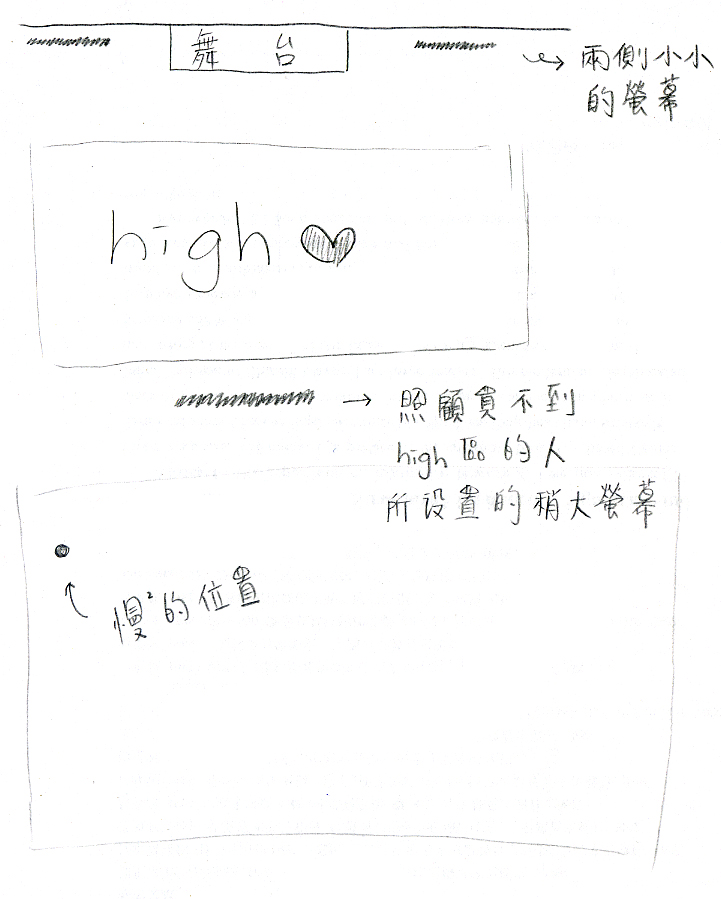 舞台
兩側小小
的螢幕
high
照顧買不到
high區的人
所設置的稍大螢幕
慢²的位置